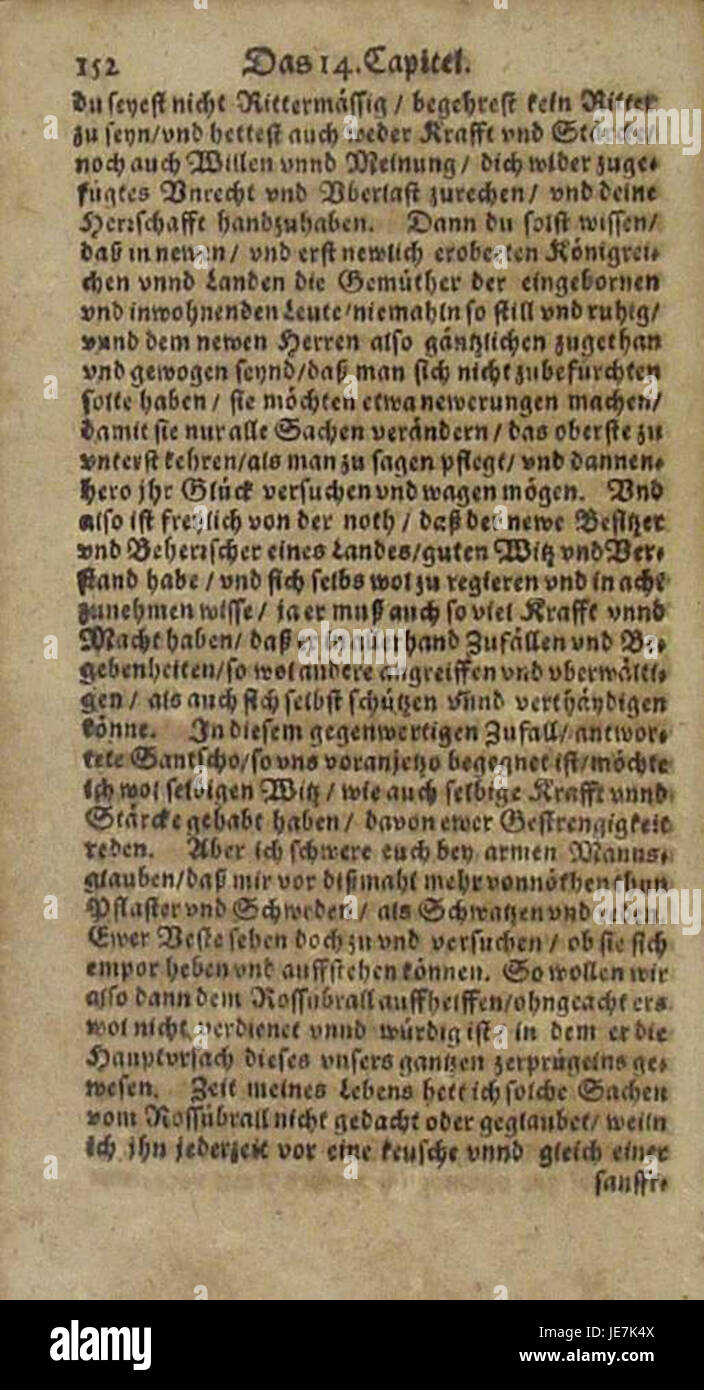 152 Das 14. Capitel.
du seyest nicht Rittermässig / begehrest kein Ritter
zu seyn/vnd hettest auch weder Krafft vnd Stärcke/
noch auch Willen vnnd Meinung / dich wider zuge-
fügtes Vnrecht vnd Vberlast zurechen / vnd deine
Herrschafft handzuhaben. Dann du solst wissen/
daß in newen / vnd erst newlich eroberten Königrei-
chen vnnd Landen die Gemüther der eingebornen
vnd inwohnenden Leute/niemahln so still vnd ruhig/
vnnd dem newen Herren also gäntzlichen zugethan
vnd gewogen seynd/daß man sich nicht zubefürchten
solte haben / sie möchten etwa newerungen machen/
damit sie nur alle Sachen verändern / das oberste zu
vnterst kehren/als man zu sagen pflegt/ vnd dannen-
hero jhr Glück versuchen vnd wagen mögen. Vnd
also ist freylich von der noth / daß der newe Besitzer
vnd Beherrscher eines Landes/guten Witz vnd Ver-
stand habe / vnd sich selbs wol zu regieren vnd in acht
zunehmen wisse / ja er muß auch so viel Krafft vnnd
Macht haben/ daß er in allerhand Zufällen vnd Be-
gebenheiten/so wol andere angreiffen vnd vberwälti-
gen / als auch sich selbst schützen vnnd verthäydigen
könne. In diesem gegenwertigen Zufall/ antwor-
tete Santscho/so vns voranjetzo begegnet ist/möchte
ich wol selbigen Witz / wie auch selbige Krafft vnnd
Stärcke gehabt haben / davon ewer Gestrengigkeit
reden. Aber ich schwere euch bey armen Manns-
glauben/daß mir vor dißmahl mehr vonnöthen thun
Pflaster vnd Schweden / als Schwatzen vnd reden.
Ewer Veste sehen doch zu vnd versuchen / ob sie sich
empor heben vnd auffstehen können. So wollen wir
also dann dem Rossübrall auffhelffen/ohngeacht ers
wol nicht verdienet vnnd würdig ist / in dem er die
Hauptvrsach dieses vnsers gantzen zerprügelns ge-
wesen. Zeit meines Lebens hett ich solche Sachen
vom Rossübrall nicht gedacht oder geglaubet/ weiln
ich jhn jederzeit vor eine keusche vnnd gleich einer
sanfft-
alamy
Image ID: JE7K4X
www.alamy.com